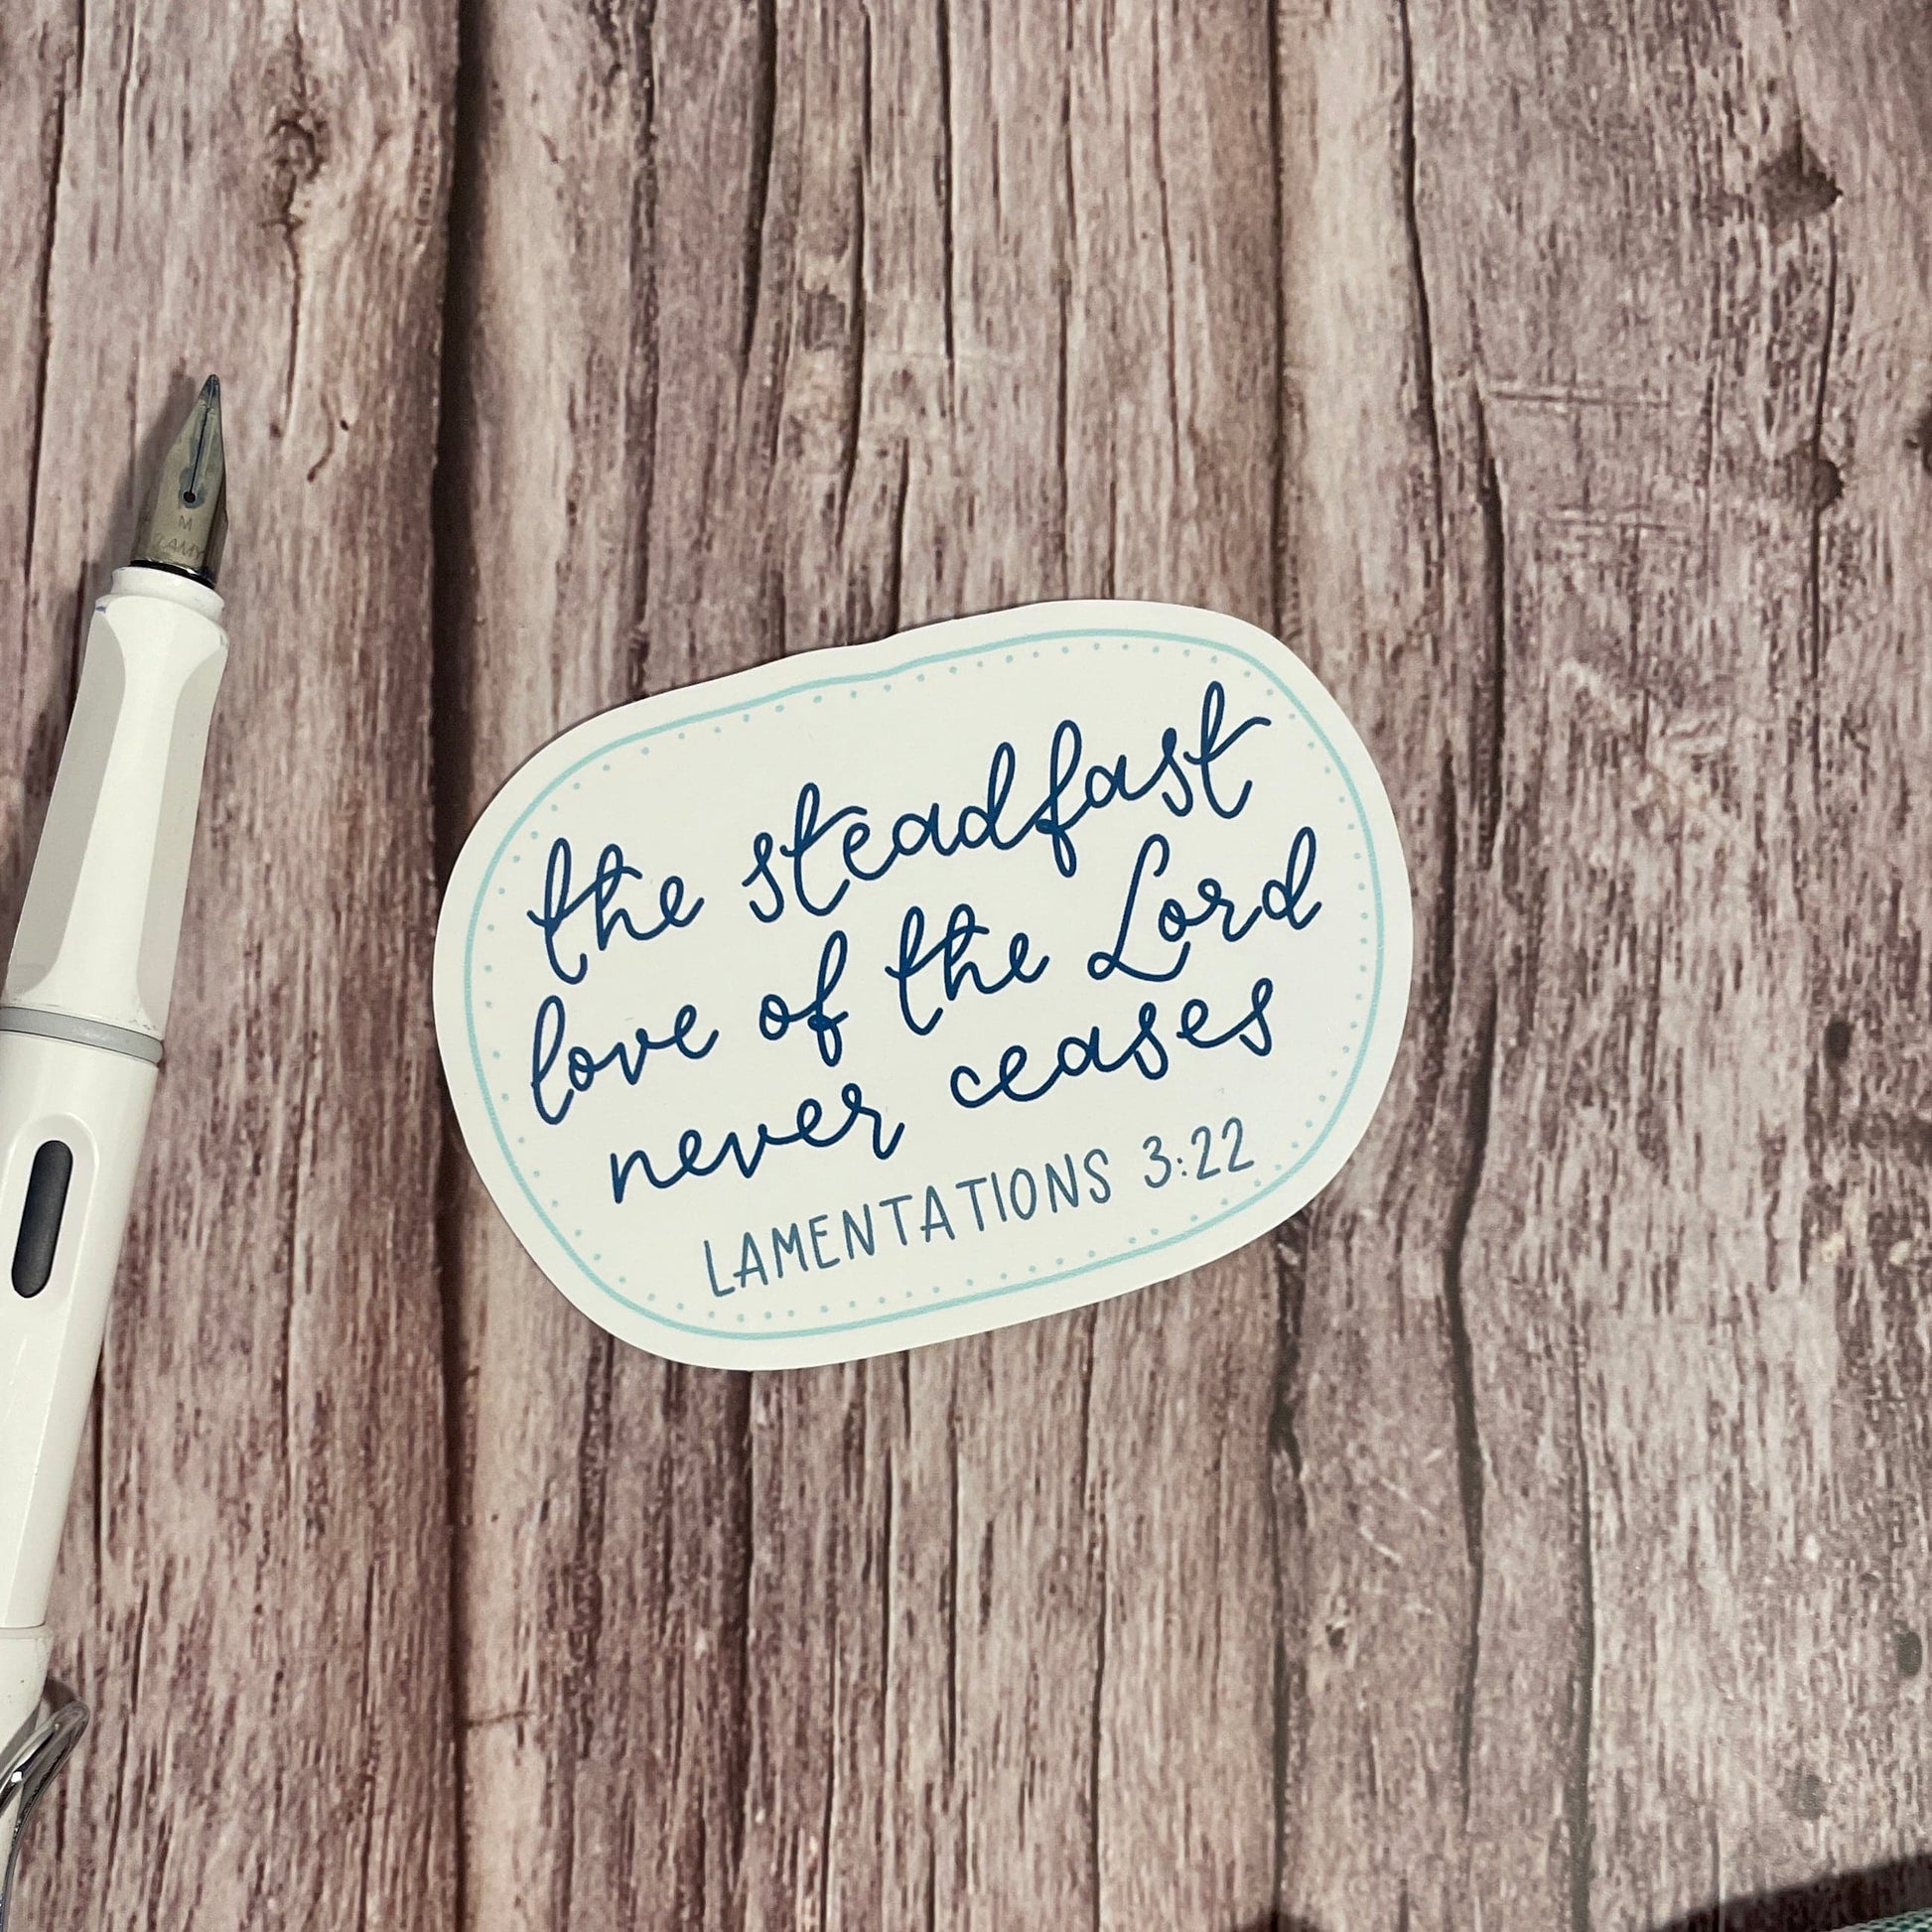 M
LAMY
the steadfast
love of the Lord
never ceases
LAMENTATIONS 3:22